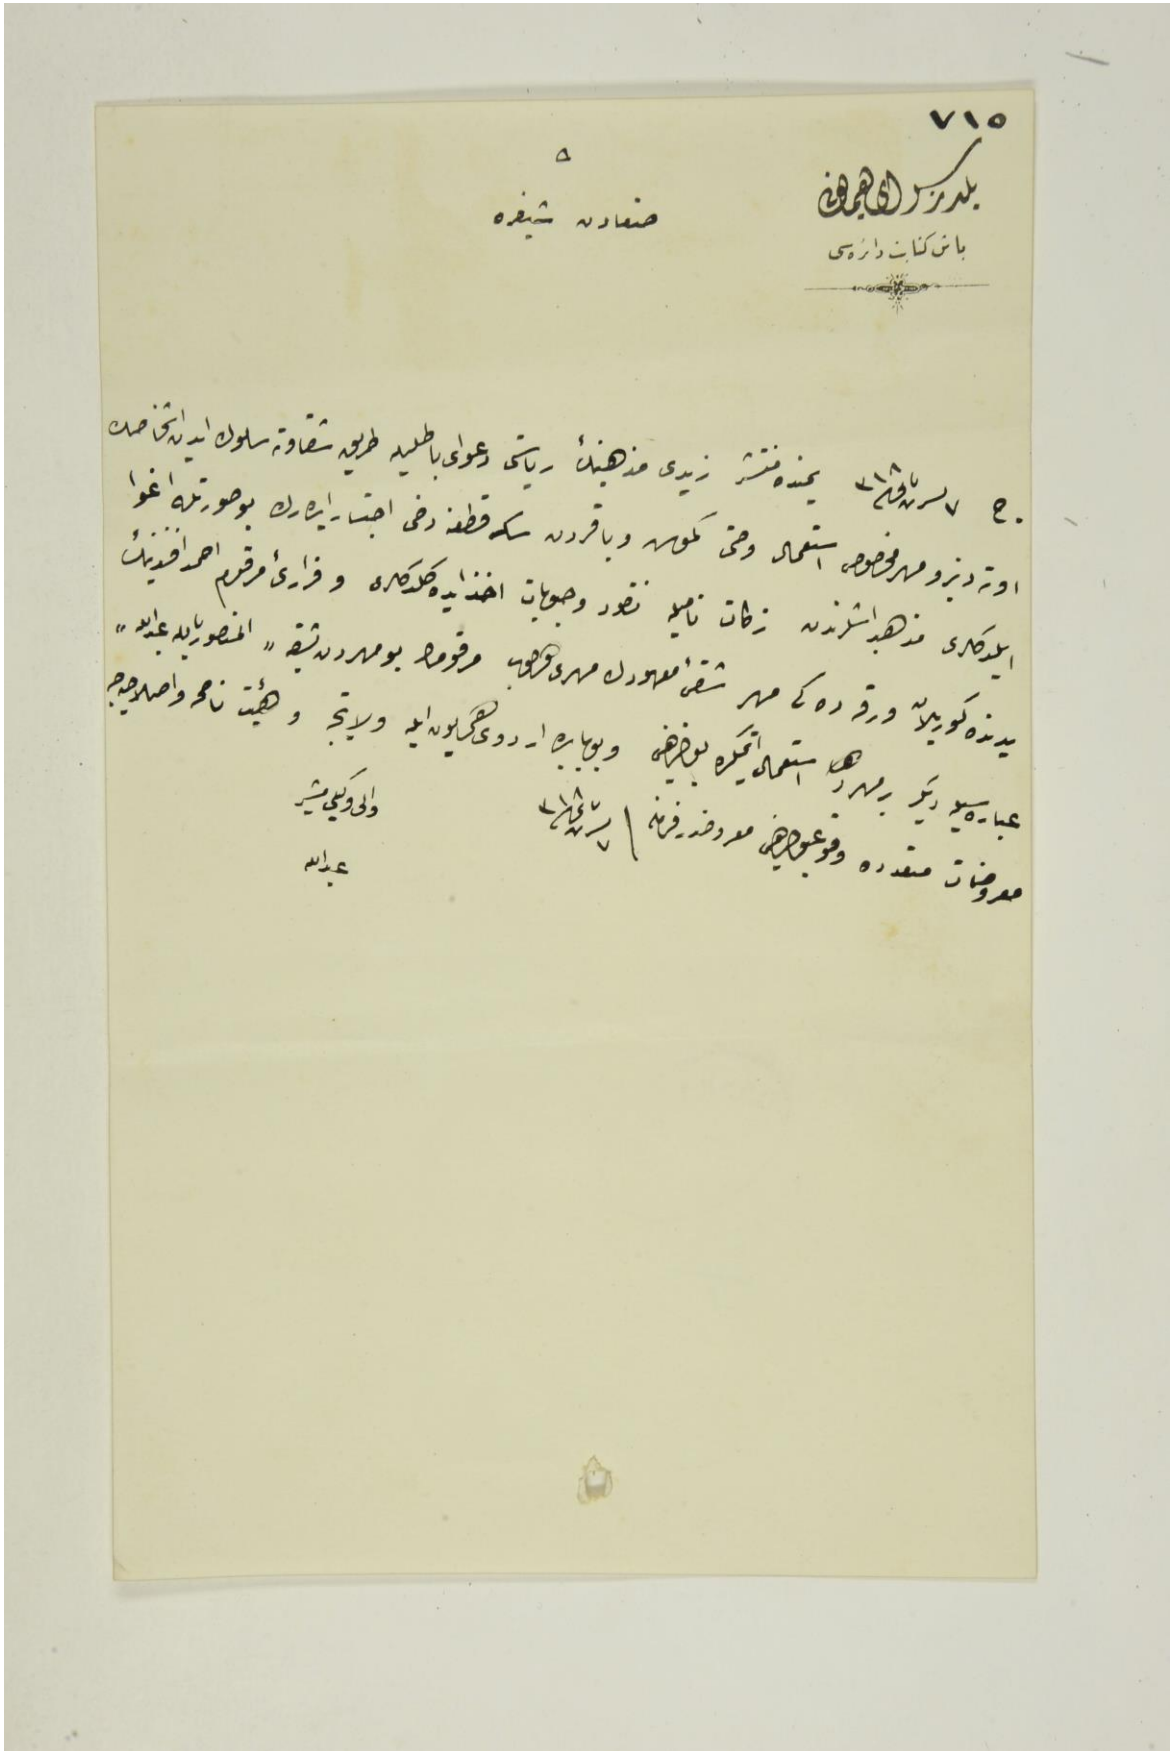 ٧١٥
يلديز سراى همايونى
باش كتابت دائره‌سى
صنعادن شيفره
ج ٧ تشرين ثانى ٣١٨ يمنده منتشر زيدى مذهبنك رياستى دعواى باطليله طريق شقاوته سلوك ايدن اشخاصك
اوته‌دنبرو مهر مخصوص استعمال وحتى كموش وباقردن سكه قطعنه دخى اجتسار ايدرك بوصورتله اغوا
ايلدكلرى مذهبداشلرندن زكات ناميله نقود وحبوبات اخذ ايده‌كلدكلرى و فرارئ مرقوم احمد افندينك
يدنده كوريلان ورقه‌ده‌كى مهر شقئ معهودك مهرى اولوب مرقومك بو مهردن بشقه " المنصور بالله عبدالله "
عباره‌سيله ديكر بر مهر دها استعمال ايتمكده بولنديغى وبوبابده اردوى همايون ايله ولايتجه و هيئت ناصحه واصلاحيه‌جه
معروضات متعدده وقوعبولديغى معروضدر فرمان ٧ تشرين ثانى ٣١٨
والى وكيلى مشير
عبدالله